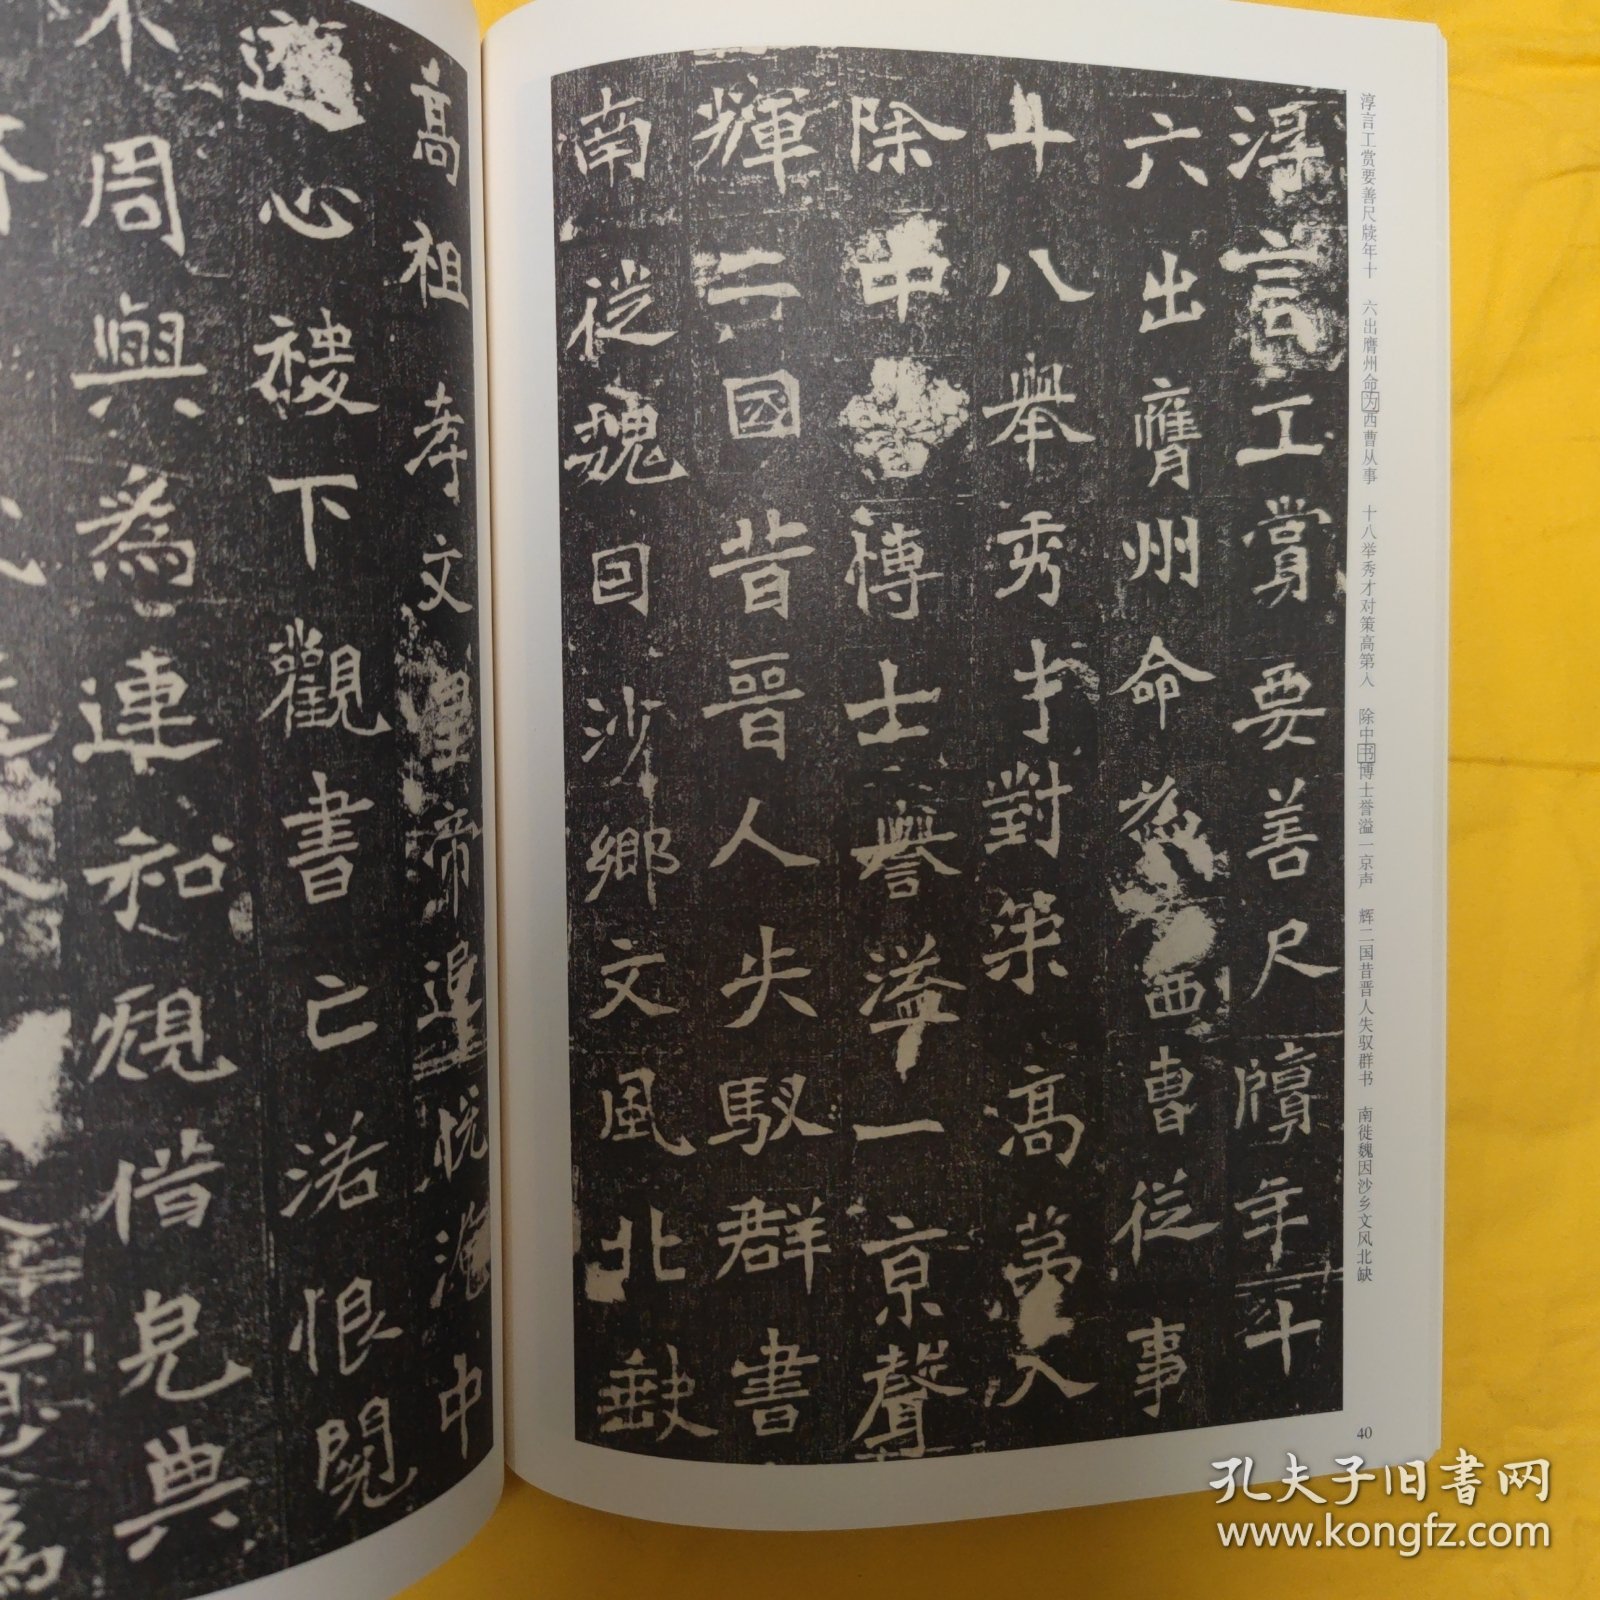 淳言工赏要善尺牍年十　六出膺州命为西曹从事　十八举秀才对策高第入　除中书博士誉溢一京声　辉二国昔晋人失驭群书　南徙魏因沙乡文风北缺
淳言工賞要善尺牘年十
六出膺州命為西曹從事
十八舉秀才對策高第入
除中書博士譽溢一京聲
輝二國昔晉人失馭群書
南徙魏因沙鄉文風北缺
40
高祖孝文皇帝追悅淹中
遊心稷下觀書亡落恨閱
不周與為連和規借完典
孔夫子旧書网
www.kongfz.com